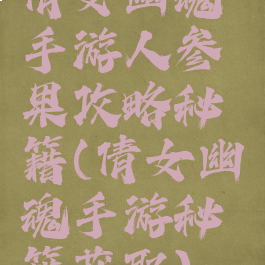 倩女幽魂
手游人参
果攻略秘
籍(倩女幽
魂手游秘
籍获取)